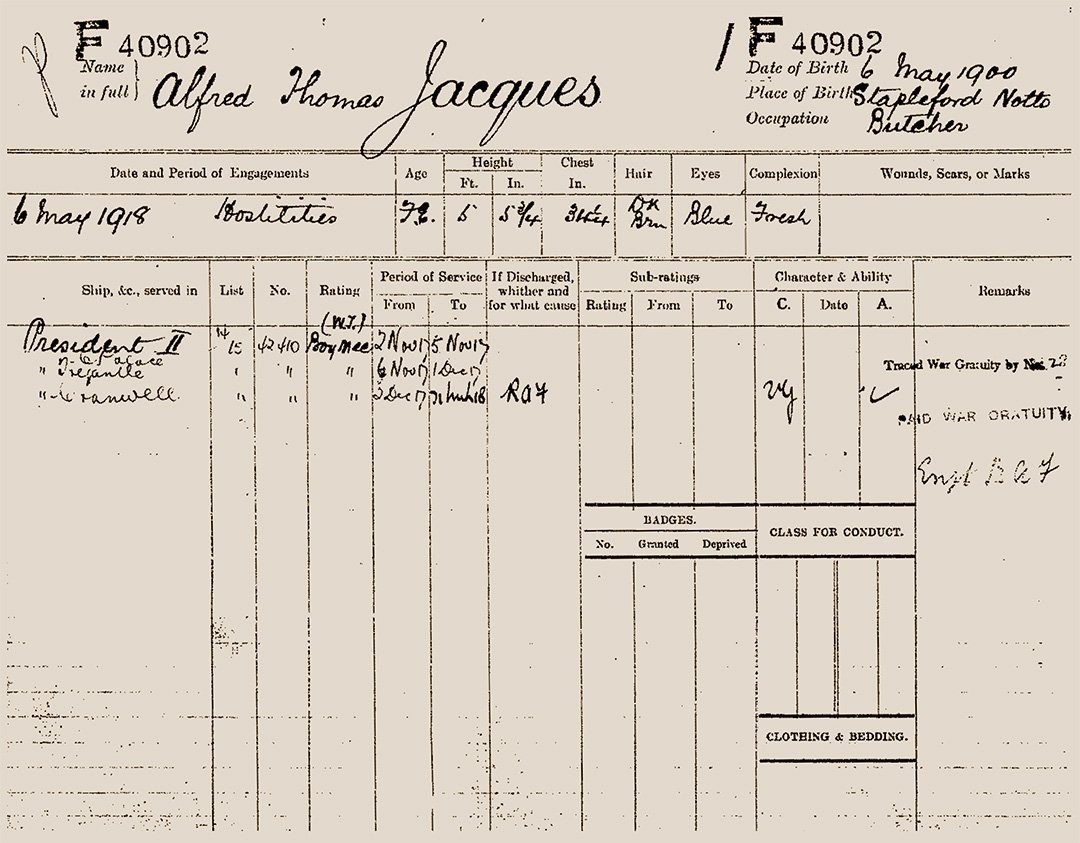 F 40902
Name in full } Alfred Thomas Jacques
F 40902
Date of Birth 6 May 1900
Place of Birth Stapleford Notts
Occupation Butcher
Date and Period of Engagements Age Height Ft. In. Chest In. Hair Eyes Complexion Wounds, Scars, or Marks
6 May 1918 Hostilities F.E. 5 5 3/4 Dk Brn Blue Fresh
Ship, &c., served in List No. Rating Period of Service From To If Discharged, whither and for what cause Sub-ratings Rating From To Character & Ability C. Date A. Remarks
(W.T.)
President II 14/15 42410 Boy Mec 2 Nov 17 5 Nov 17
C Palace
" Tregantle " " " 6 Nov 17 1 Dec 17
Traced War Gratuity by
" Cranwell " " " 2 Dec 17 31 Mch 18 RAF VG
PAID WAR GRATUITY
RAF
BADGES.
No. Granted Deprived
CLASS FOR CONDUCT.
CLOTHING & BEDDING.